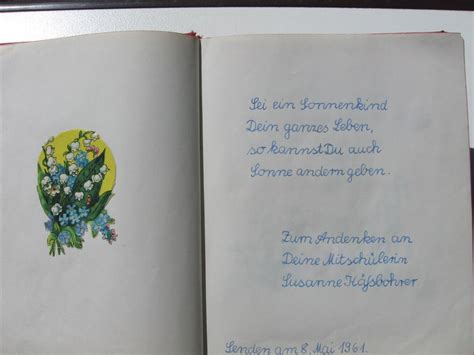 Sei ein Sonnenkind
Dein ganzes Leben,
so kannst Du auch
Sonne andern geben.
Zum Andenken an
Deine Mitschülerin
Susanne
Senden am 8. Mai 1961.